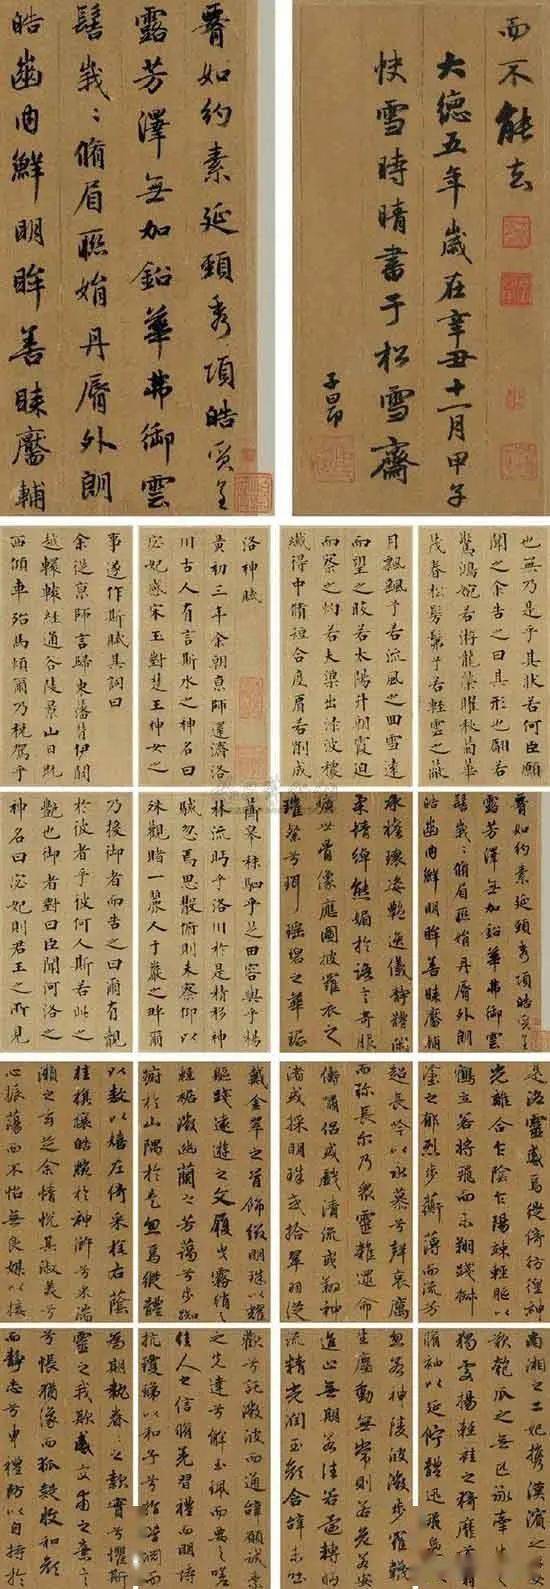 霄如約素延頸秀項皓質呈
露芳澤無加鉛華弗御雲
髻峩〻脩眉聯娟丹脣外朗
皓齒內鮮明眸善睞靨輔
而不能去
大德五年歲在辛丑十一月甲子
快雪時晴書于松雪齋
子昂
洛神賦
黃初三年余朝京師還濟洛
川古人有言斯水之神名曰
宓妃感宋玉對楚王神女之
事遂作斯賦其詞曰
余從京師言歸東藩背伊闕
越轘轅經通谷陵景山日既
西傾車殆馬煩爾乃稅駕乎
蘅皋秣駟乎芝田容與乎楊
林流眄乎洛川於是精移神
駭忽焉思散俯則未察仰以
殊觀睹一麗人于巖之畔爾
乃援御者而告之曰爾有覿
於彼者乎彼何人斯若此之
艷也御者對曰臣聞河洛之
神名曰宓妃則君王之所見
也無乃是乎其狀若何臣願
聞之余告之曰其形也翩若
驚鴻婉若游龍榮曜秋菊華
茂春松髣髴乎若輕雲之蔽
月飄飄乎若流風之回雪遠
而望之皎若太陽升朝霞迫
而察之灼若夫渠出淥波穠
纖得中脩短合度肩若削成
霄如約素延頸秀項皓質呈
露芳澤無加鉛華弗御雲
髻峩〻脩眉聯娟丹脣外朗
皓齒內鮮明眸善睞靨輔
承權瓌姿艷逸儀靜體閑
柔情綽態媚於語言奇服
曠世骨像應圖披羅衣之
璀粲兮珥瑤碧之華琚
戴金翠之首飾綴明珠以耀
軀踐遠遊之文履曳霧綃之
輕裾微幽蘭之芳藹兮步踟
躕於山隅於是忽焉縱體
以敖以嬉左倚采旄右蔭
桂旗攘皓腕於神滸兮采湍
瀨之玄芝余情悅其淑美兮
心振蕩而不怡無良媒以接
歡兮託微波而通辭願誠素
之先達兮解玉珮而要之嗟
佳人之信脩羌習禮而明詩
抗瓊珶以和予兮指潛淵而
為期執眷〻之款實兮懼斯
靈之我欺感交甫之棄言
兮悵猶豫而狐疑收和顏
而靜志兮申禮防以自持於
是洛靈感焉徙倚彷徨神
光離合乍陰乍陽竦輕軀以
鶴立若將飛而未翔踐椒
塗之郁烈步蘅薄而流芳
超長吟以永慕兮聲哀厲
而彌長爾乃眾靈雜遝命
儔嘯侶或戲清流或翔神
渚或採明珠或拾翠羽從
南湘之二妃攜漢濱之游女
歎匏瓜之無匹詠牽牛之
獨處揚輕袿之猗靡兮翳
脩袖以延佇體迅飛鳧
忽若神陵波微步羅襪
生塵動無常則若危若安
進止無期若往若還轉眄
流精光潤玉顏含辭未吐